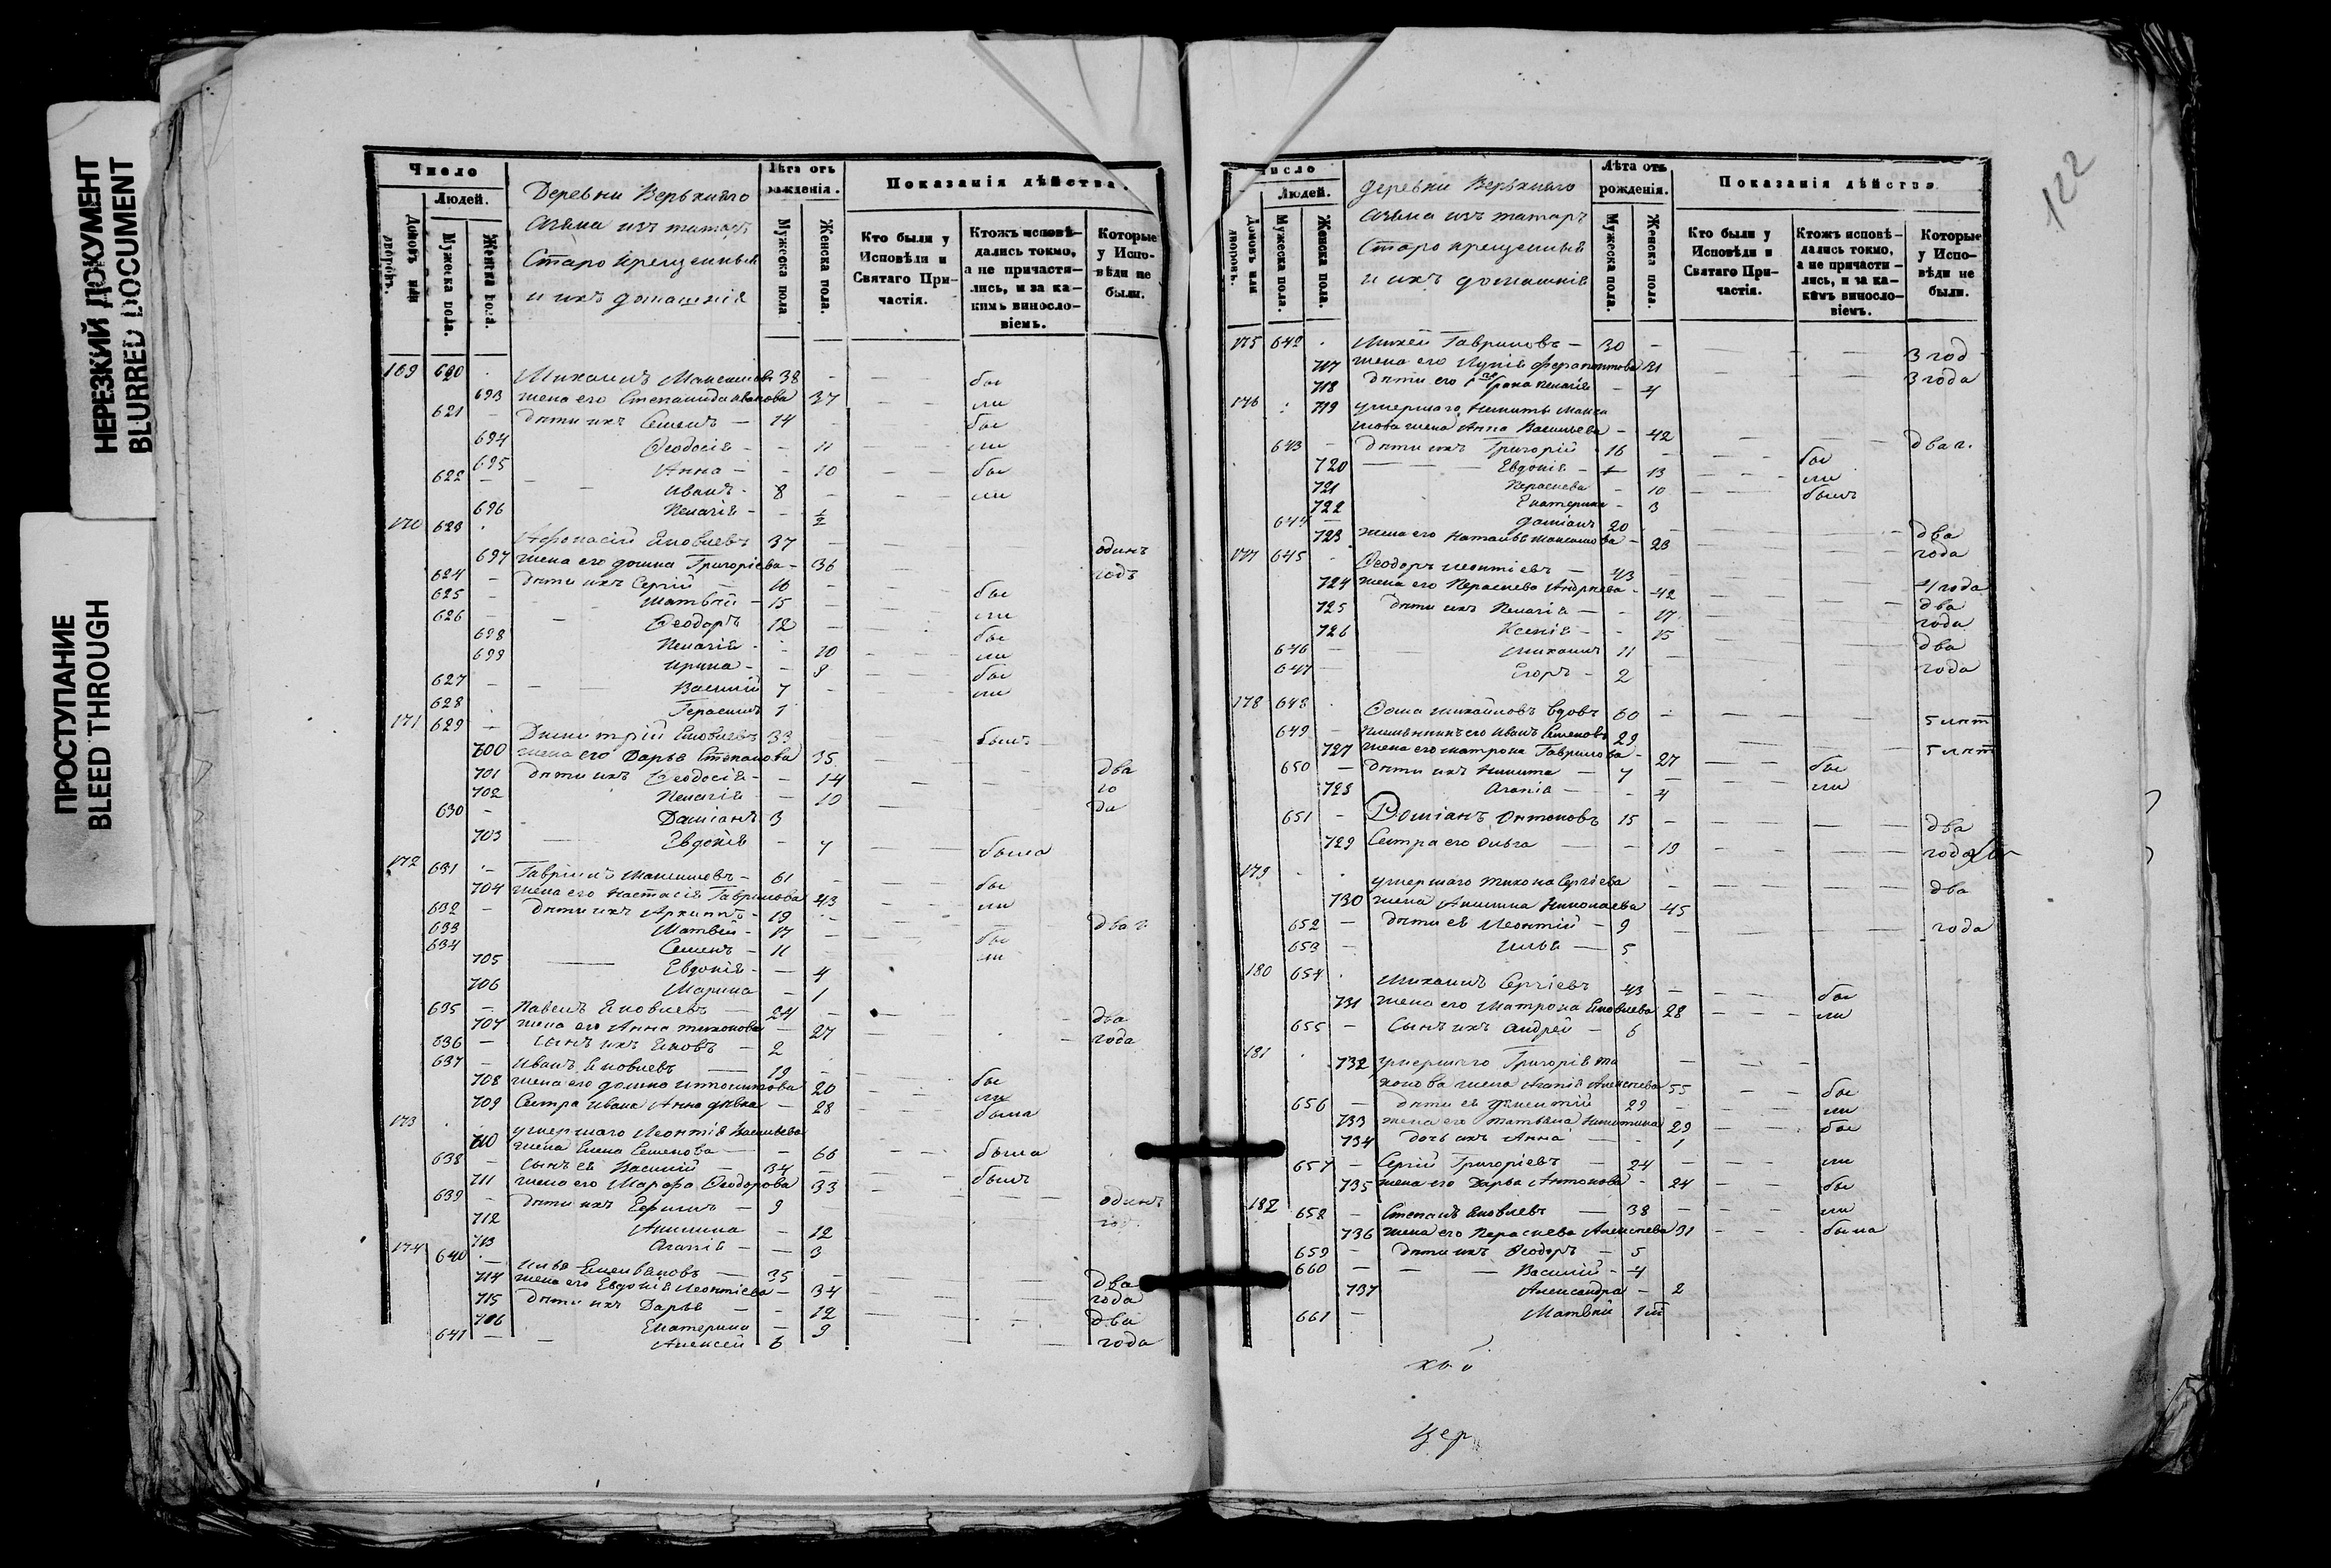 НЕРЕЗКИЙ ДОКУМЕНТ
BLURRED DOCUMENT
ПРОСТУПАНИЕ
BLEED THROUGH
Число
Людей.
Домовъ или дворовъ.
Мужеска пола.
Женска пола.
Деревни Верьхняго
изъ татаръ
Старо крещенныя
и ихъ домашнія
Лѣта отъ рожденія.
Мужеска пола
Женска пола.
Показанія дѣйства.
Кто были у Исповѣди и Святаго Причастія.
Ктожъ исповѣдались токмо, а не причастились, и за какимъ винословіемъ.
Которые у Исповѣди не были.
169 620 Михаилъ Максимовъ 38 - бы
693 жена его Степанида Иванова 37 ли
621 дѣти ихъ Семенъ 14 бы
694 Ѳеодосія 11 ли
695 Анна 10 бы
622 Иванъ 8 ли
696 Пелагія 1/2
170 623 Афонасій Яковлевъ 37 одинъ
697 жена его Домна Григоріева 36 годъ
624 дѣти ихъ Сергій 16 бы
625 Матвѣй 15 ли
626 Ѳеодоръ 12 бы
698 Пелагія 10 ли
699 Ирина 9 бы
627 Василій 7 ли
628 Герасимъ 1
171 629 Димитрій Яковлевъ 33 былъ
700 жена его Дарья Степанова 35 два
701 дѣти ихъ Ѳеодосія 14 го
702 Пелагія 10 да
630 Даміанъ 3
703 Евдокія 7 была
172 631 Гавріилъ Максимовъ 61 бы
704 жена его Настасія Гаврилова 43 ли
632 дѣти ихъ Архиппъ 19 два г.
633 Матвей 17 бы
634 Семенъ 11 ли
705 Евдокія 4
706 Марина 1
635 Павелъ Яковлевъ 24 два
707 жена его Анна Тихонова 27 года
636 сынъ ихъ Яковъ 2
637 Иванъ Яковлевъ 19 бы
708 жена его Домна 20 ли
709 Сестра Ивана Анна дѣвка 28 была
173 умершаго Леонтія Васильева
710 жена Елена Семенова 66 была
638 сынъ ея Василій 34 былъ
711 жена его Марфа Ѳеодорова 33 одинъ
639 дѣти ихъ Ефимъ 9 го
712 Акилина 12
713 Агапія 3
174 640 Илья Емельяновъ 35 два
714 жена его Евдокія Леонтіева 34 года
715 дѣти ихъ Дарья 12 два
716 Екатерина 9
641 Алексей 6 года
122
Число
Людей.
Домовъ или дворовъ.
Мужеска пола.
Женска пола.
деревни Верьхняго
изъ татаръ
Старо крещенныя
и ихъ домашнія
Лѣта отъ рожденія.
Мужеска пола.
Женска пола.
Показанія дѣйства
Кто были у Исповѣди и Святаго Причастія.
Ктожъ исповѣдались токмо, а не причастились, и за какимъ винословіемъ.
Которые у Исповѣди не были.
175 642 Михей Гавриловъ 30 3 год
717 жена его 31 3 года
718 дѣти его Пелагія 4
176 719 умершаго Никиты Макси
мова жена Анна Васильева 42 два г.
643 дѣти ихъ Григорій 16 бы
720 Евдокія 13 ли
721 Параскева 10 былъ
722 Екатерина 3
644 Даміанъ 20 два
723 жена его Наталья Максимова 23 года
177 645 Ѳеодоръ Леонтіевъ 43 4 года
724 жена его Параскева Андреева 42 два
725 дѣти ихъ Пелагія 17 года
726 Ксенія 15 два
646 Михаилъ 11
647 Егоръ 2 года
178 648 Ѳома Михайловъ вдовъ 60 5 лѣтъ
649 племянникъ его Иванъ Семеновъ 29 5 лѣтъ
727 жена его Матрона Гаврилова 27
650 дѣти ихъ Никита 7 бы
728 Агапія 4 ли
651 Даміанъ Антоновъ 15 два
729 Сестра его Ольга 19 года
179 умершаго Тихона Сергіева два
730 жена Акилина Николаева 45
652 дѣти ея Леонтій 9 года
653 Илья 5
180 654 Михаилъ Сергіевъ 43 бы
731 жена его Матрона Яковлева 28 ли
655 Сынъ ихъ Андрей 6
181 732 умершаго Григорія Ти
хонова жена Агапія Алексѣева 55 бы
656 дѣти ея 29 ли
733 жена его Татьяна Никитина 29 бы
734 дочь ихъ Анна 1
657 Сергій Григоріевъ 24 ли
735 жена его Дарья Антонова 24 бы
182 658 Степанъ Яковлевъ 38 ли
736 жена его Параскева Алексѣева 31 была
659 дѣти ихъ Ѳеодоръ 5
660 Василій 4
737 Александра 2
661 Матвѣй 1